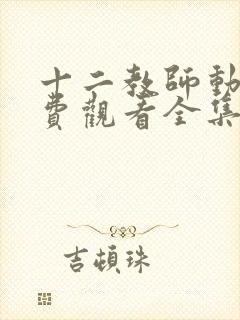 十二教師動
費觀看全集
吉頓珠